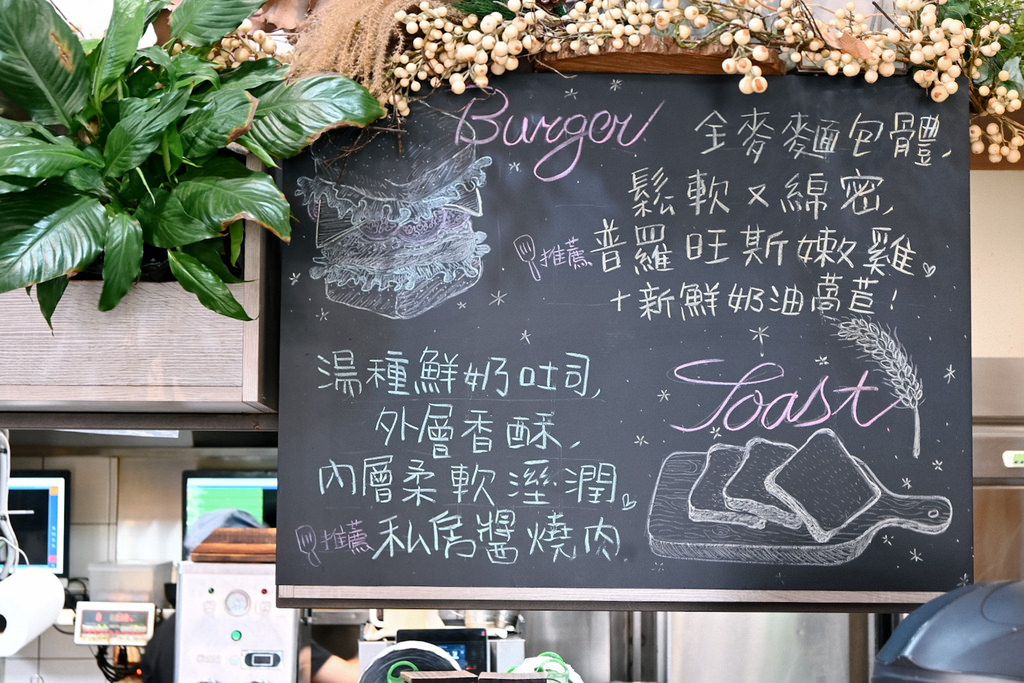 Burger
全麥麵包體,
鬆軟又綿密,
推薦 普羅旺斯嫩雞
+新鮮奶油萵苣!
Toast
湯種鮮奶吐司,
外層香酥,
內層柔軟溼潤
推薦 私房醬燒肉